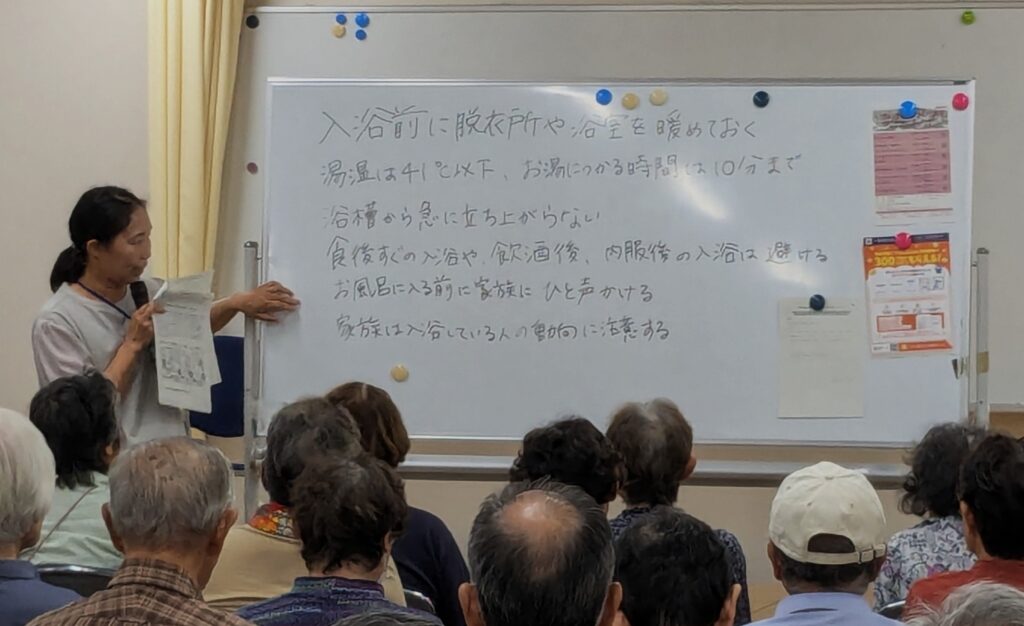 入浴前に脱衣所や浴室を暖めておく
湯温は41℃以下、お湯につかる時間は10分まで
浴槽から急に立ち上がらない
食後すぐの入浴や、飲酒後、内服後の入浴は避ける
お風呂に入る前に家族にひと声かける
家族は入浴している人の動向に注意する